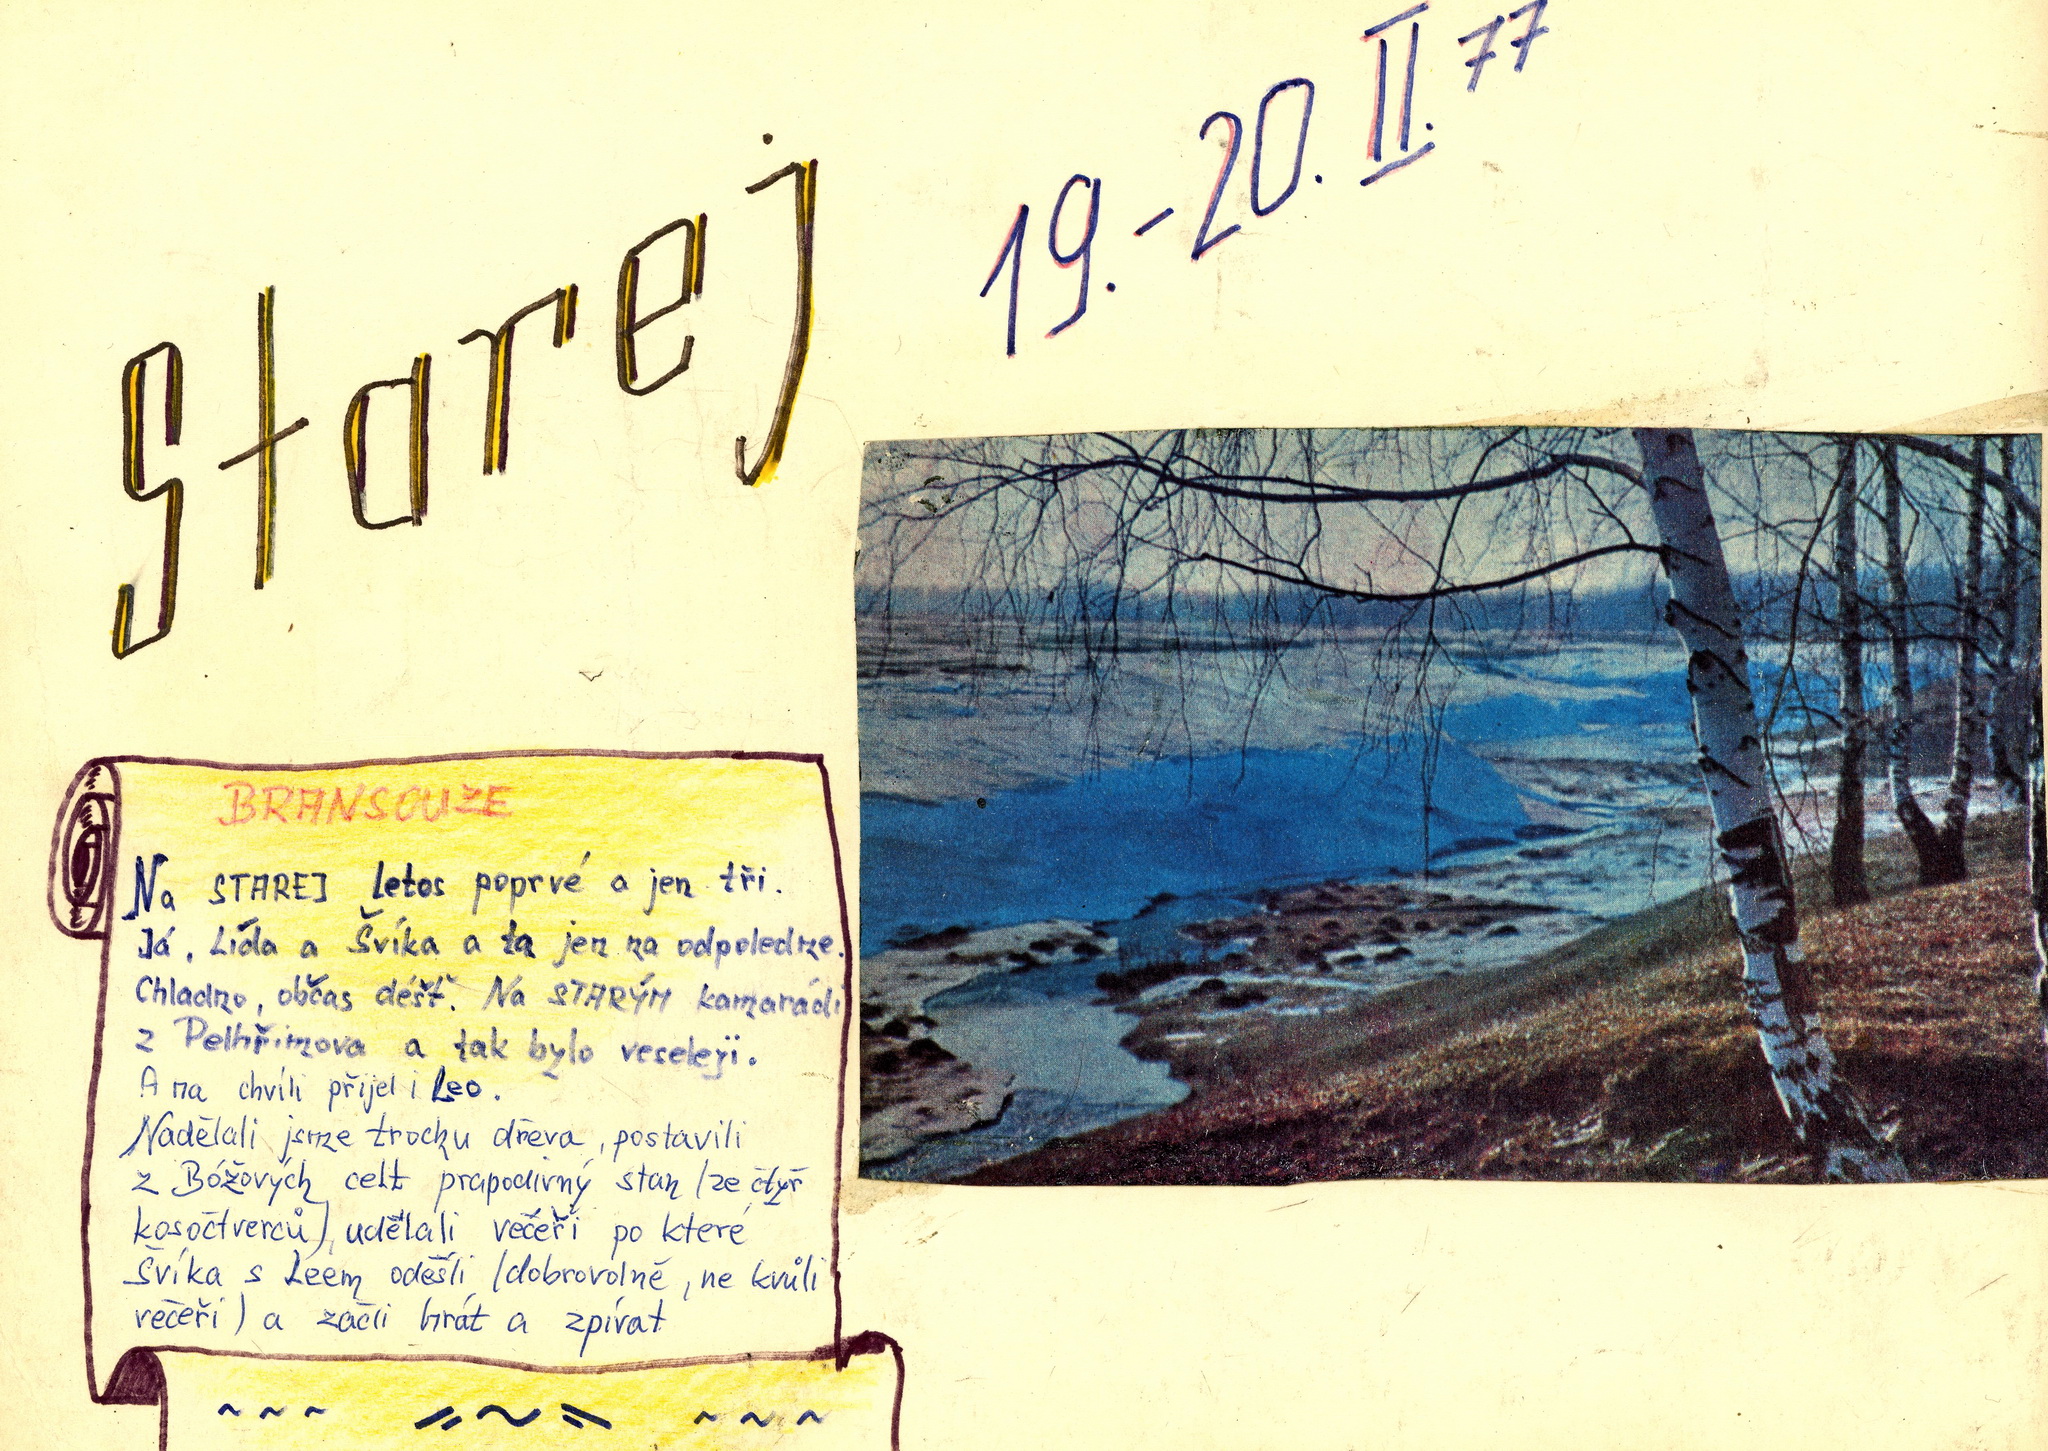 Starej
19.-20. II. 77
BRANSOUZE
Na STAREJ letos poprvé a jen tři.
Já, Lída a Švíka a ta jen na odpoledne.
Chladno, občas déšť. Na STARÝM kamarádi
z Pelhřimova a tak bylo veseleji.
A na chvíli přijel i Leo.
Nadělali jsme trochu dřeva, postavili
z Bóžových celt prapodivný stan /ze čtyř
kosočtverců/, udělali večeři po které
Švíka s Leem odešli /dobrovolně, ne kvůli
večeři) a začli hrát a zpívat